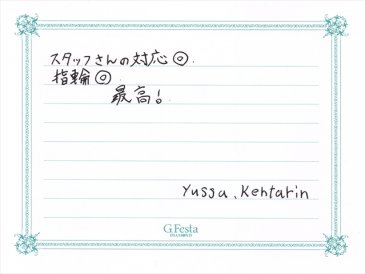 スタッフさんの対応◎.
指輪◎.
最高!
Yusya、Kentarin
G.Festa